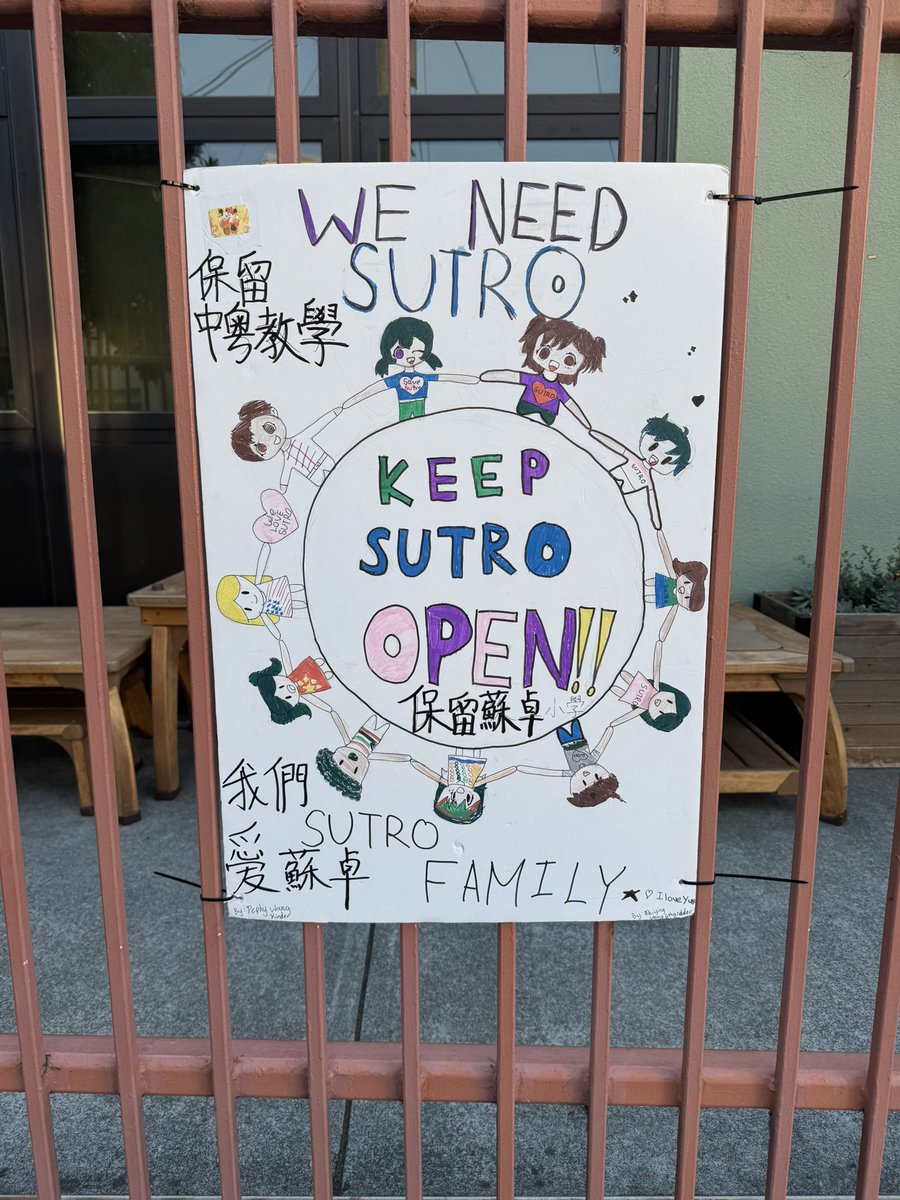 WE NEED
SUTRO
保留
中粵教學
Save
Sutro
SUTRO
SUTRO
WE
LOVE
SUTRO
KEEP
SUTRO
OPEN!!
保留蘇卓小學
SUTRO
我們
愛蘇卓
SUTRO
FAMILY
I love
By:
Wang
Kinder
By: